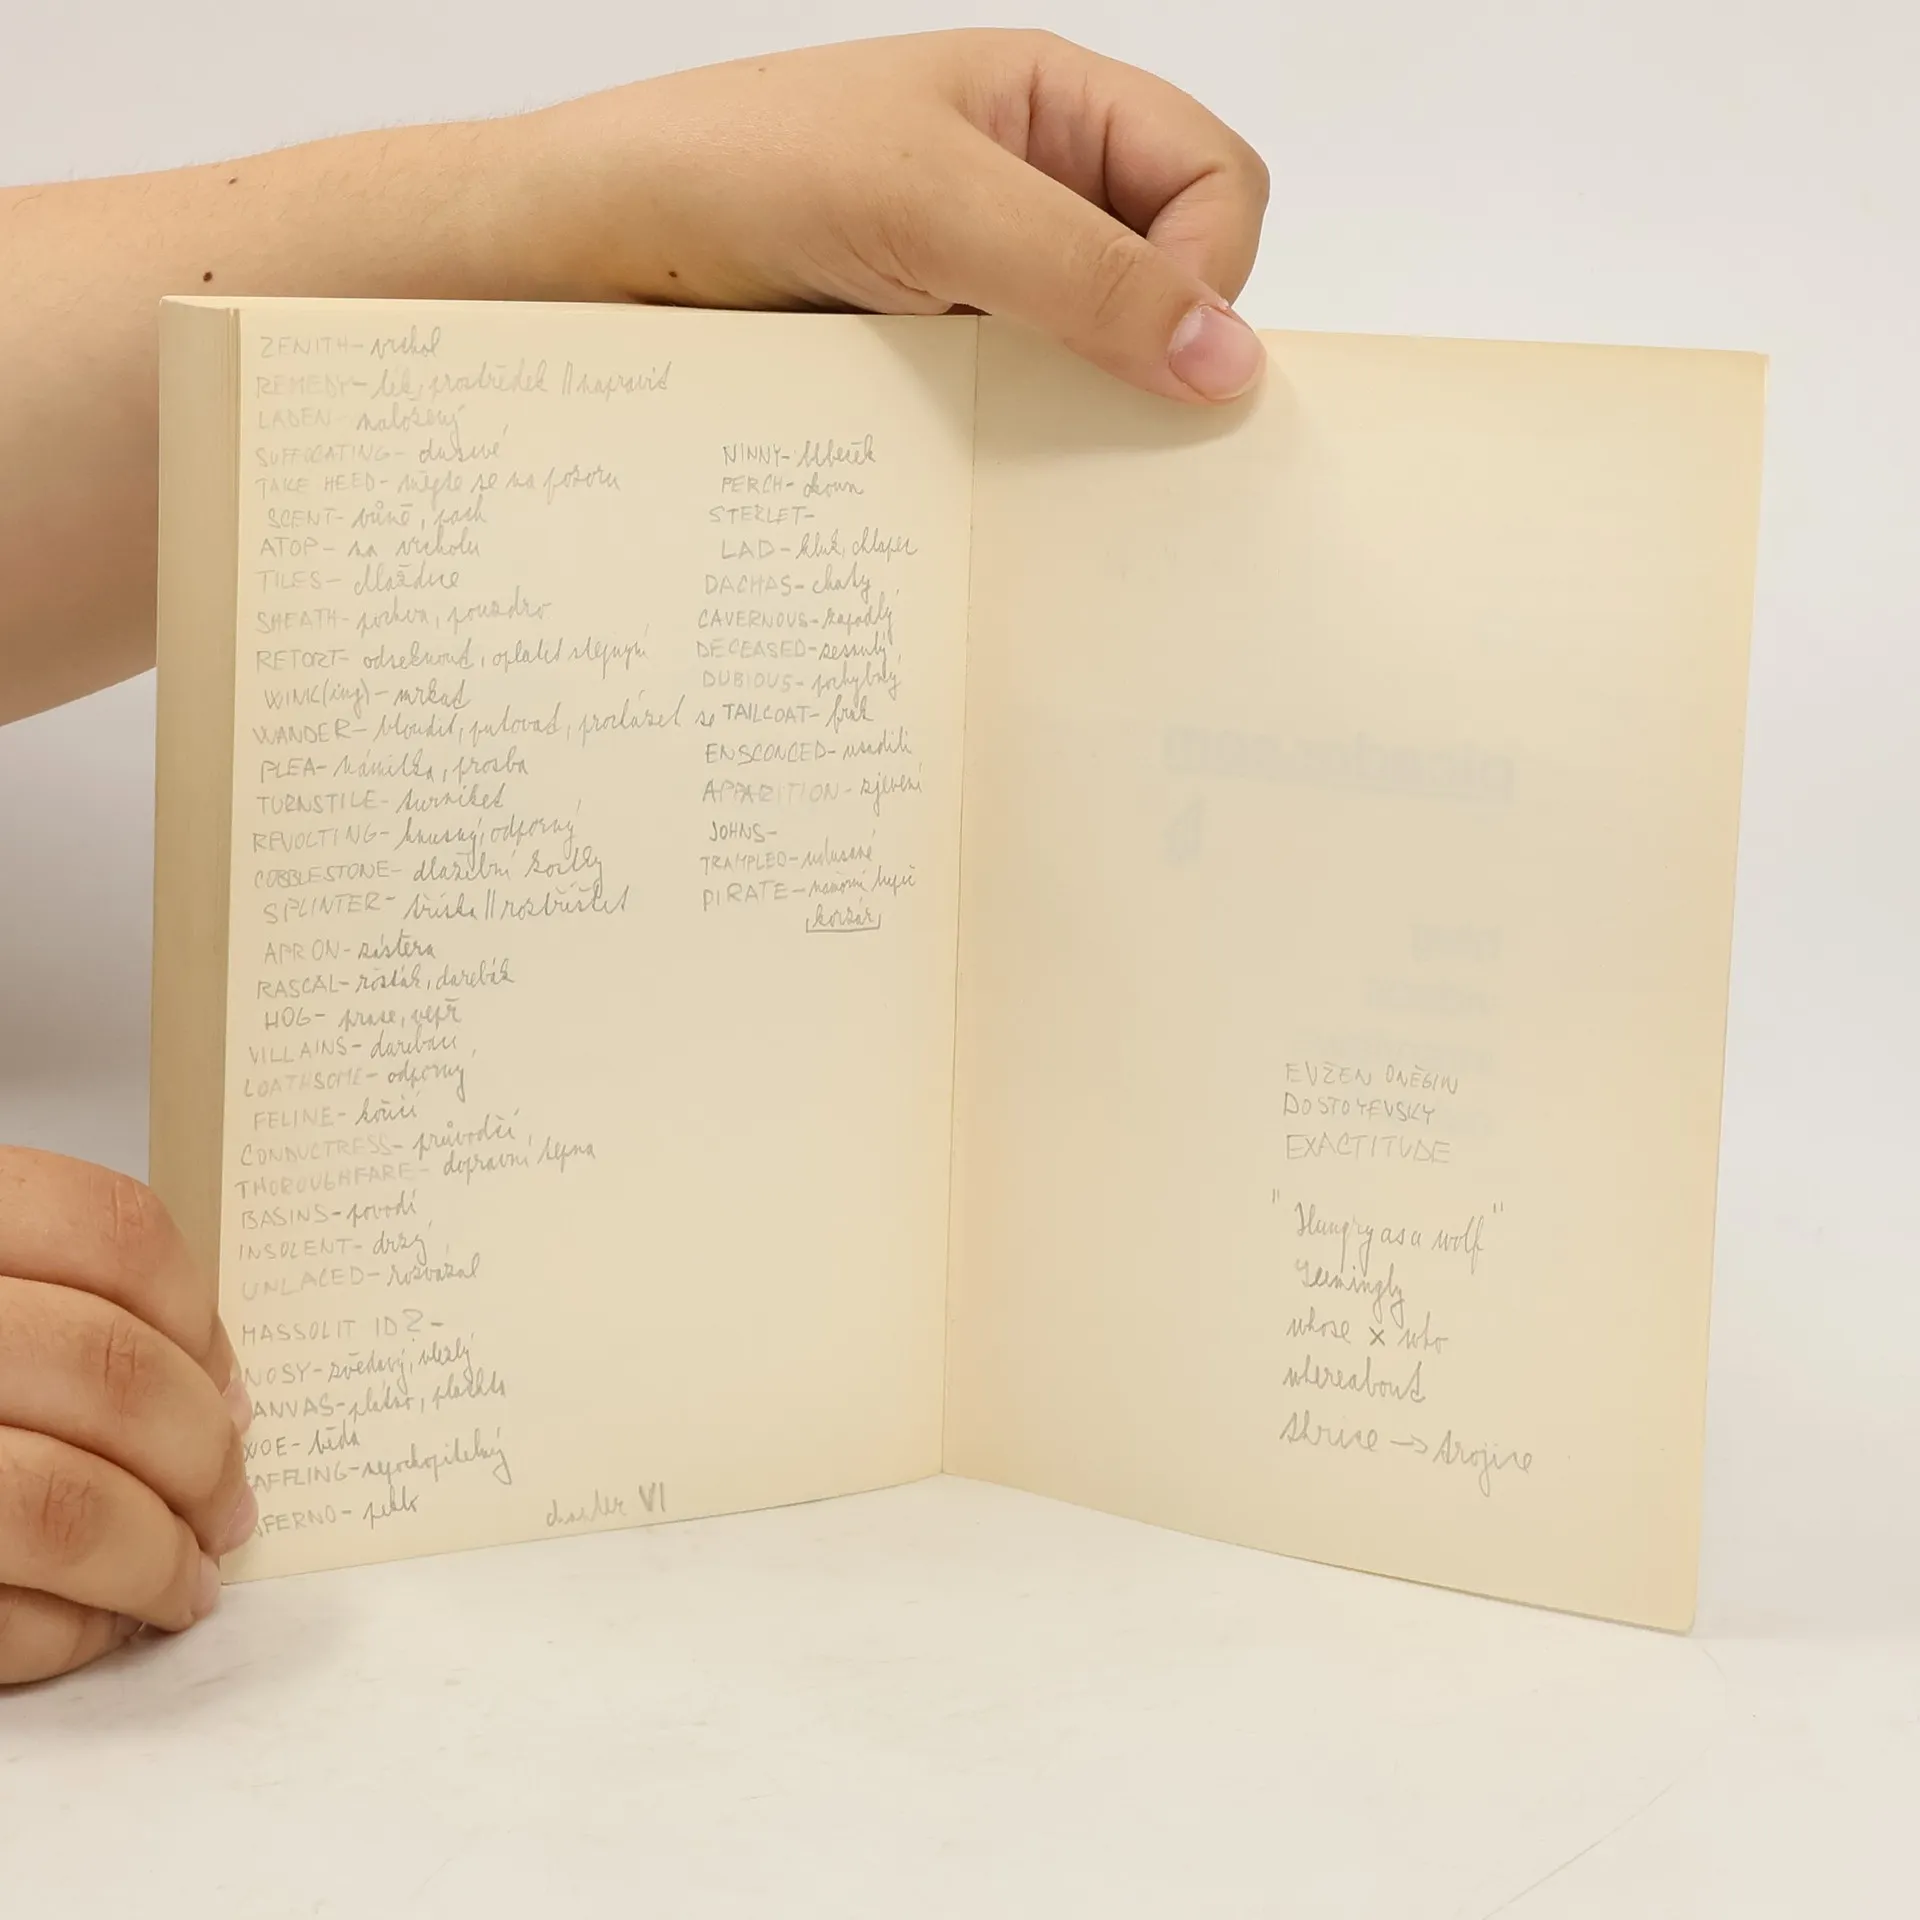 ZENITH – vrchol
REMEDY – lék, prostředek || napravit
LADEN – naložený
SUFFOCATING – dusivé
TAKE HEED – mějte se na pozoru
SCENT – vůně, pach
ATOP – na vrcholu
TILES – dlaždice
SHEATH – pochva, pouzdro
RETORT – odseknout, oplatit stejným
WINK(ing) – mrkat
WANDER – bloudit, putovat, procházet se
PLEA – námitka, prosba
TURNSTILE – turniket
REVOLTING – hnusný, odporný
COBBLESTONE – dlažební kostky
SPLINTER – tříska || roztříštit
APRON – zástěra
RASCAL – rošťák, darebák
HOG – prase, vepř
VILLAINS – darebáci
LOATHSOME – odporný
FELINE – kočičí
CONDUCTRESS – průvodčí
THOROUGHFARE – dopravní tepna
BASINS – povodí
INSOLENT – drzý
UNLACED – rozvázal
MASSOLIT ID? –
NOSY – zvědavý, vlezlý
ANVAS – plátno, plachta
WOE – běda
AFFLING – nepochopitelný
FERNO – peklo
chapter VI
NINNY – blbeček
PERCH – okoun
STERLET –
LAD – kluk, chlapec
DACHAS – chaty
CAVERNOUS – zapadlý
DECEASED – zesnulý
DUBIOUS – pochybný
TAILCOAT – frak
ENSCONCED – usadili
APPARITION – zjevení
JOHNS –
TRAMPLED – udusané
PIRATE – námořní lupič
korzár
EVŽEN ONĚGIN
DOSTOYEVSKY
EXACTITUDE
"Hungry as a wolf"
Seemingly
whose × who
whereabout
thrice → trojice